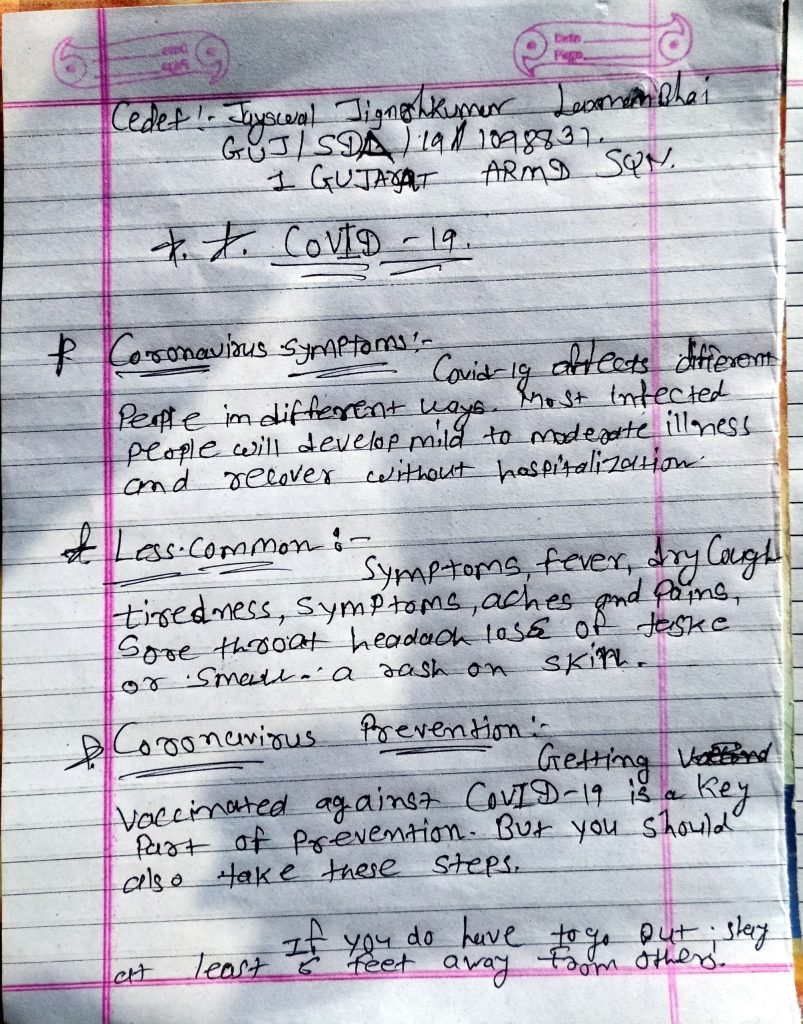 Date
Page
Cedet :- Jayswal Jigneshkumar Laxmanbhai
GUJ / SDA / 19 / 1098831.
1 GUJARAT ARMD SQN.
*. *. COVID - 19.
* Coronavirus symptoms :-
Covid-19 affects different
People in different ways. Most Infected
people will develop mild to moderate illness
and recover without hospitalization.
* Less. Common :-
Symptoms, fever, dry Cough
tiredness, symptoms, aches and pains,
Sore throat headach loss of taske
or smell - a rash on skin.
* Coronavirus Prevention :-
Getting
Vaccinated against COVID-19 is a key
Part of Prevention. But you should
also take these steps.
If you do have to go out, stay
at least 6 feet away from others.